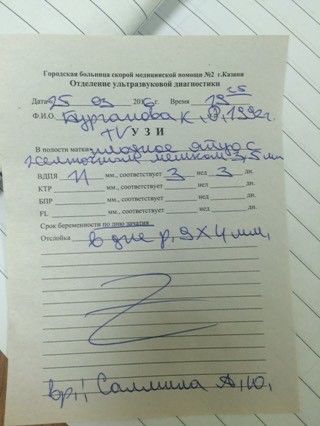 Городская больница скорой медицинской помощи №2 г.Казани
Отделение ультразвуковой диагностики
Дата 25 03 2016 г. Время 19 25
Ф.И.О. Бурганова К., 1992г.
TV У З И
В полости матки плодное яйцо с
желточным мешком 3,5 мм
ВДПЯ 11 мм., соответствует 3 нед 3 дн.
КТР мм., соответствует нед дн.
БПР мм., соответствует нед дн.
FL мм., соответствует нед дн.
Срок беременности по дню зачатия
Отслойка в дне р. 9х4 мм,
вр: